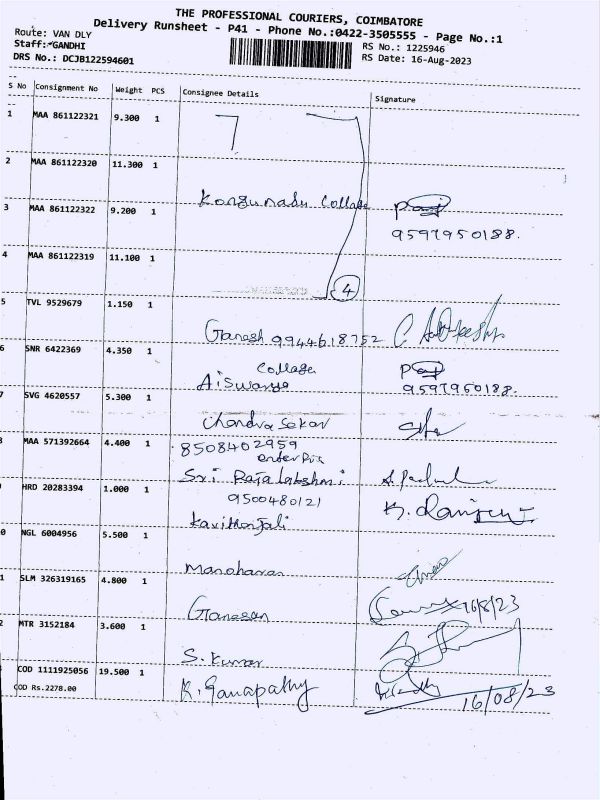 THE PROFESSIONAL COURIERS, COIMBATORE
Delivery Runsheet - P41 - Phone No.:0422-3505555 - Page No.:1
Route: VAN DLY
Staff:*GANDHI
DRS No.: DCJB122594601
RS No.: 1225946
RS Date: 16-Aug-2023
S No Consignment No Weight PCS Consignee Details Signature
1 MAA 861122321 9.300 1
2 MAA 861122320 11.300 1
Kongunadu College
3 MAA 861122322 9.200 1
9597950188.
4 MAA 861122319 11.100 1
4
5 TVL 9529679 1.150 1
Ganesh 9944618752
6 SNR 6422369 4.350 1
College
Aiswarya
9597950188.
7 SVG 4620557 5.300 1
Chandra Sekar
MAA 571392664 4.400 1
8508402959
Sri Rajalakshmi
HRD 20283394 1.000 1
9500480121
Kavithanjali
0 NGL 6004956 5.500 1
Manoharan
1 SLM 326319165 4.800 1
Ganesan
16/8/23
2 MTR 3152184 3.600 1
S. Kumar
COD 1111925056 19.500 1
COD Rs.2278.00
K. Ganapathy
16/08/23